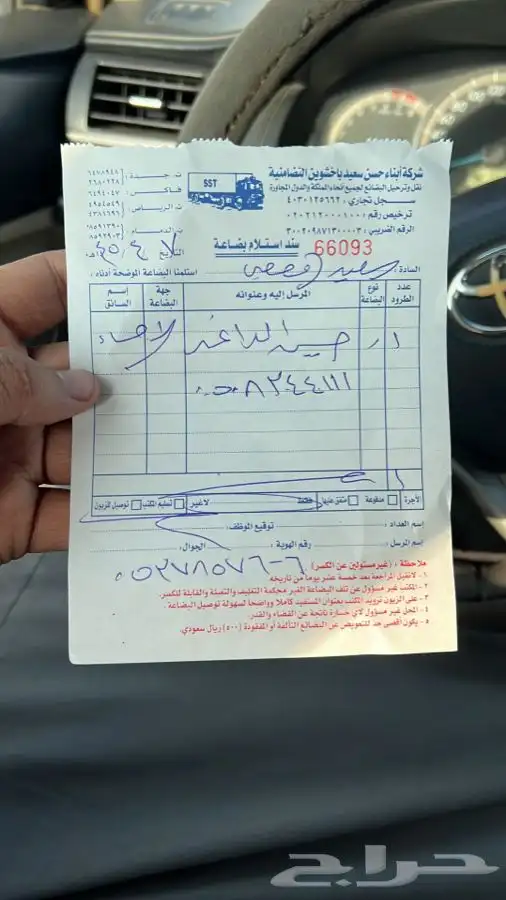 شركة أبناء حسن سعيد باخشوين التضامنية
نقل وترحيل البضائع لجميع أنحاء المملكة والدول المجاورة
سجل تجاري : ٤٠٣٠١٢٥٦٦٢
ترخيص رقم : ٠٢٠٢١٢٠٠٠١٠٠
الرقم الضريبي : ٣٠٠٢٠٩٨٧١٣٠٠٠٠٣
SST
ت جدة :
٦٤٧٨٩٤٨
٢٦٨٠٢٢٨
فاكس : ٦٤٩٤٠٤٧
ت الرياض :
٤٩٥٤٥٤٩
٤٣٨١٦٩٦
ت الدمام
سند استلام بضاعة
66093
التاريخ
السادة :
استلمنا البضاعة الموضحة أدناه :
عدد الطرود
نوع البضاعة
المرسل إليه وعنوانه
جهة البضاعة
إسم السائق
حسين
٠٥٠٨٢٤٤١١١
الأجرة
مدفوعة
متفق عليها
لاغير
تسليم المكتب
توصيل للزبون
إسم العداد :
توقيع الموظف :
إسم المرسل :
رقم الهوية :
الجوال :
٠٥٣٧٨٥٧٦٠٦
ملاحظة : (غير مسئولين عن الكسر)
١- لا تقبل المراجعة بعد خمسة عشر يوماً من تاريخه
٢- المكتب غير مسؤول عن تلف البضاعة الغير محكمة التغليف والتعبئة والقابلة للكسر.
٣- على الزبون تزويد المكتب بعنوان المستفيد كاملاً وواضحاً لسهولة توصيل البضاعة .
٤- المحل غير مسؤول لأي خسارة ناتجة عن القضاء والقدر.
٥- يكون أقصى حد للتعويض عن البضائع التالفة أو المفقودة (٥٠٠) ريال سعودي.
حراج